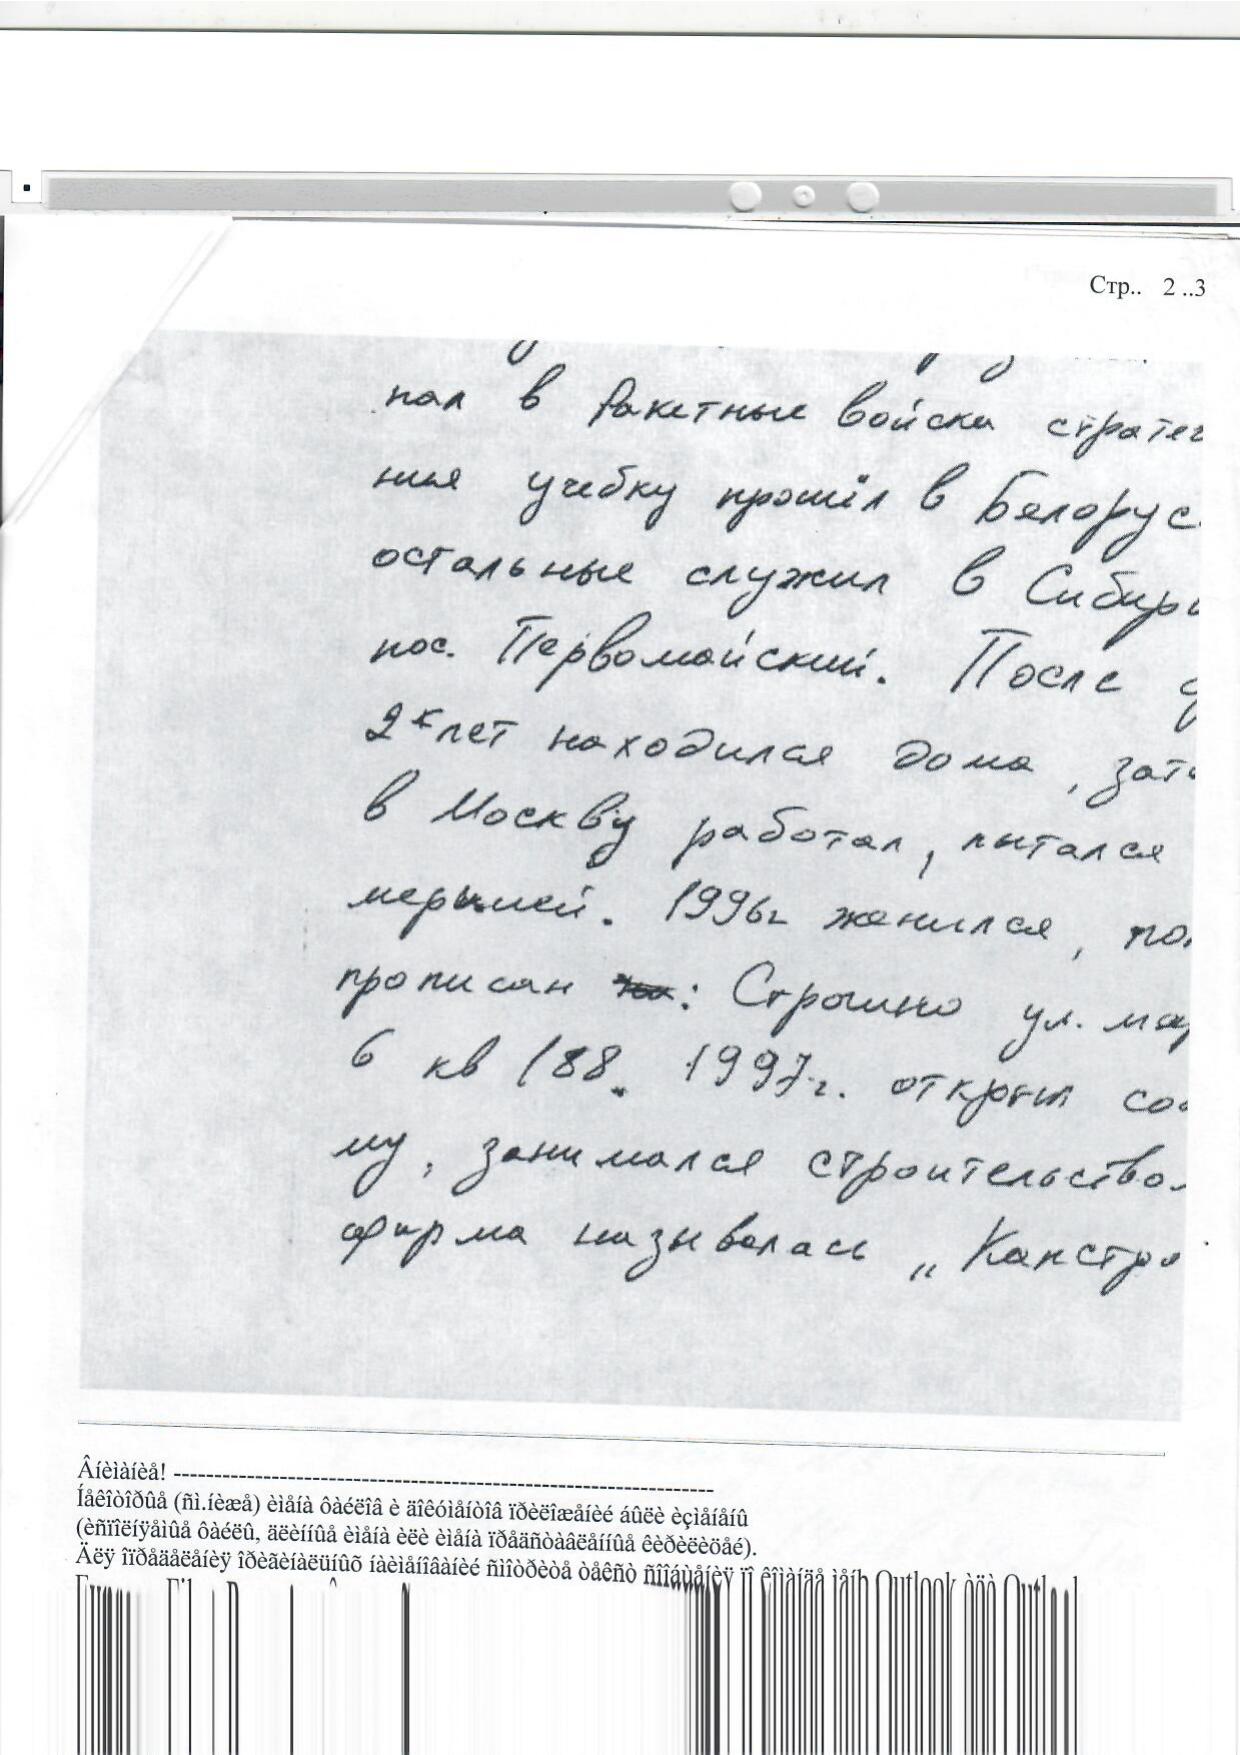 Стр.. 2 ..3
пал в Ракетные войска стратег
ния учебку прошёл в Белорус
остальные служил в Сибири
пос. Первомайский. После
2х лет находился дома, зате
в Москву работал, пытался
мерцией. 1996г женился, пол
прописан : Строгино ул. мар
6 кв 188. 1997г. открыл соб
му, занимался строительством
фирма называлась „Капстро
Âíèìàíèå! ------------------------------------------------------------------
Íåêîòîðûå (ñì.íèæå) èìåíà ôàéëîâ è äîêóìåíòîâ ïðèëîæåíèé áûëè èçìåíåíû
(èñïîëíÿåìûå ôàéëû, äëèííûå èìåíà èëè èìåíà ïðåäñòàâëåííûå êèðèëèöåé).
Äëÿ îïðåäåëåíèÿ îðèãèíàëüíûõ íàèìåíîâàíèé ñìîòðèòå òåêñò ñîîáùåíèÿ ïî êîìàíäå ìåíþ Outlook òöò